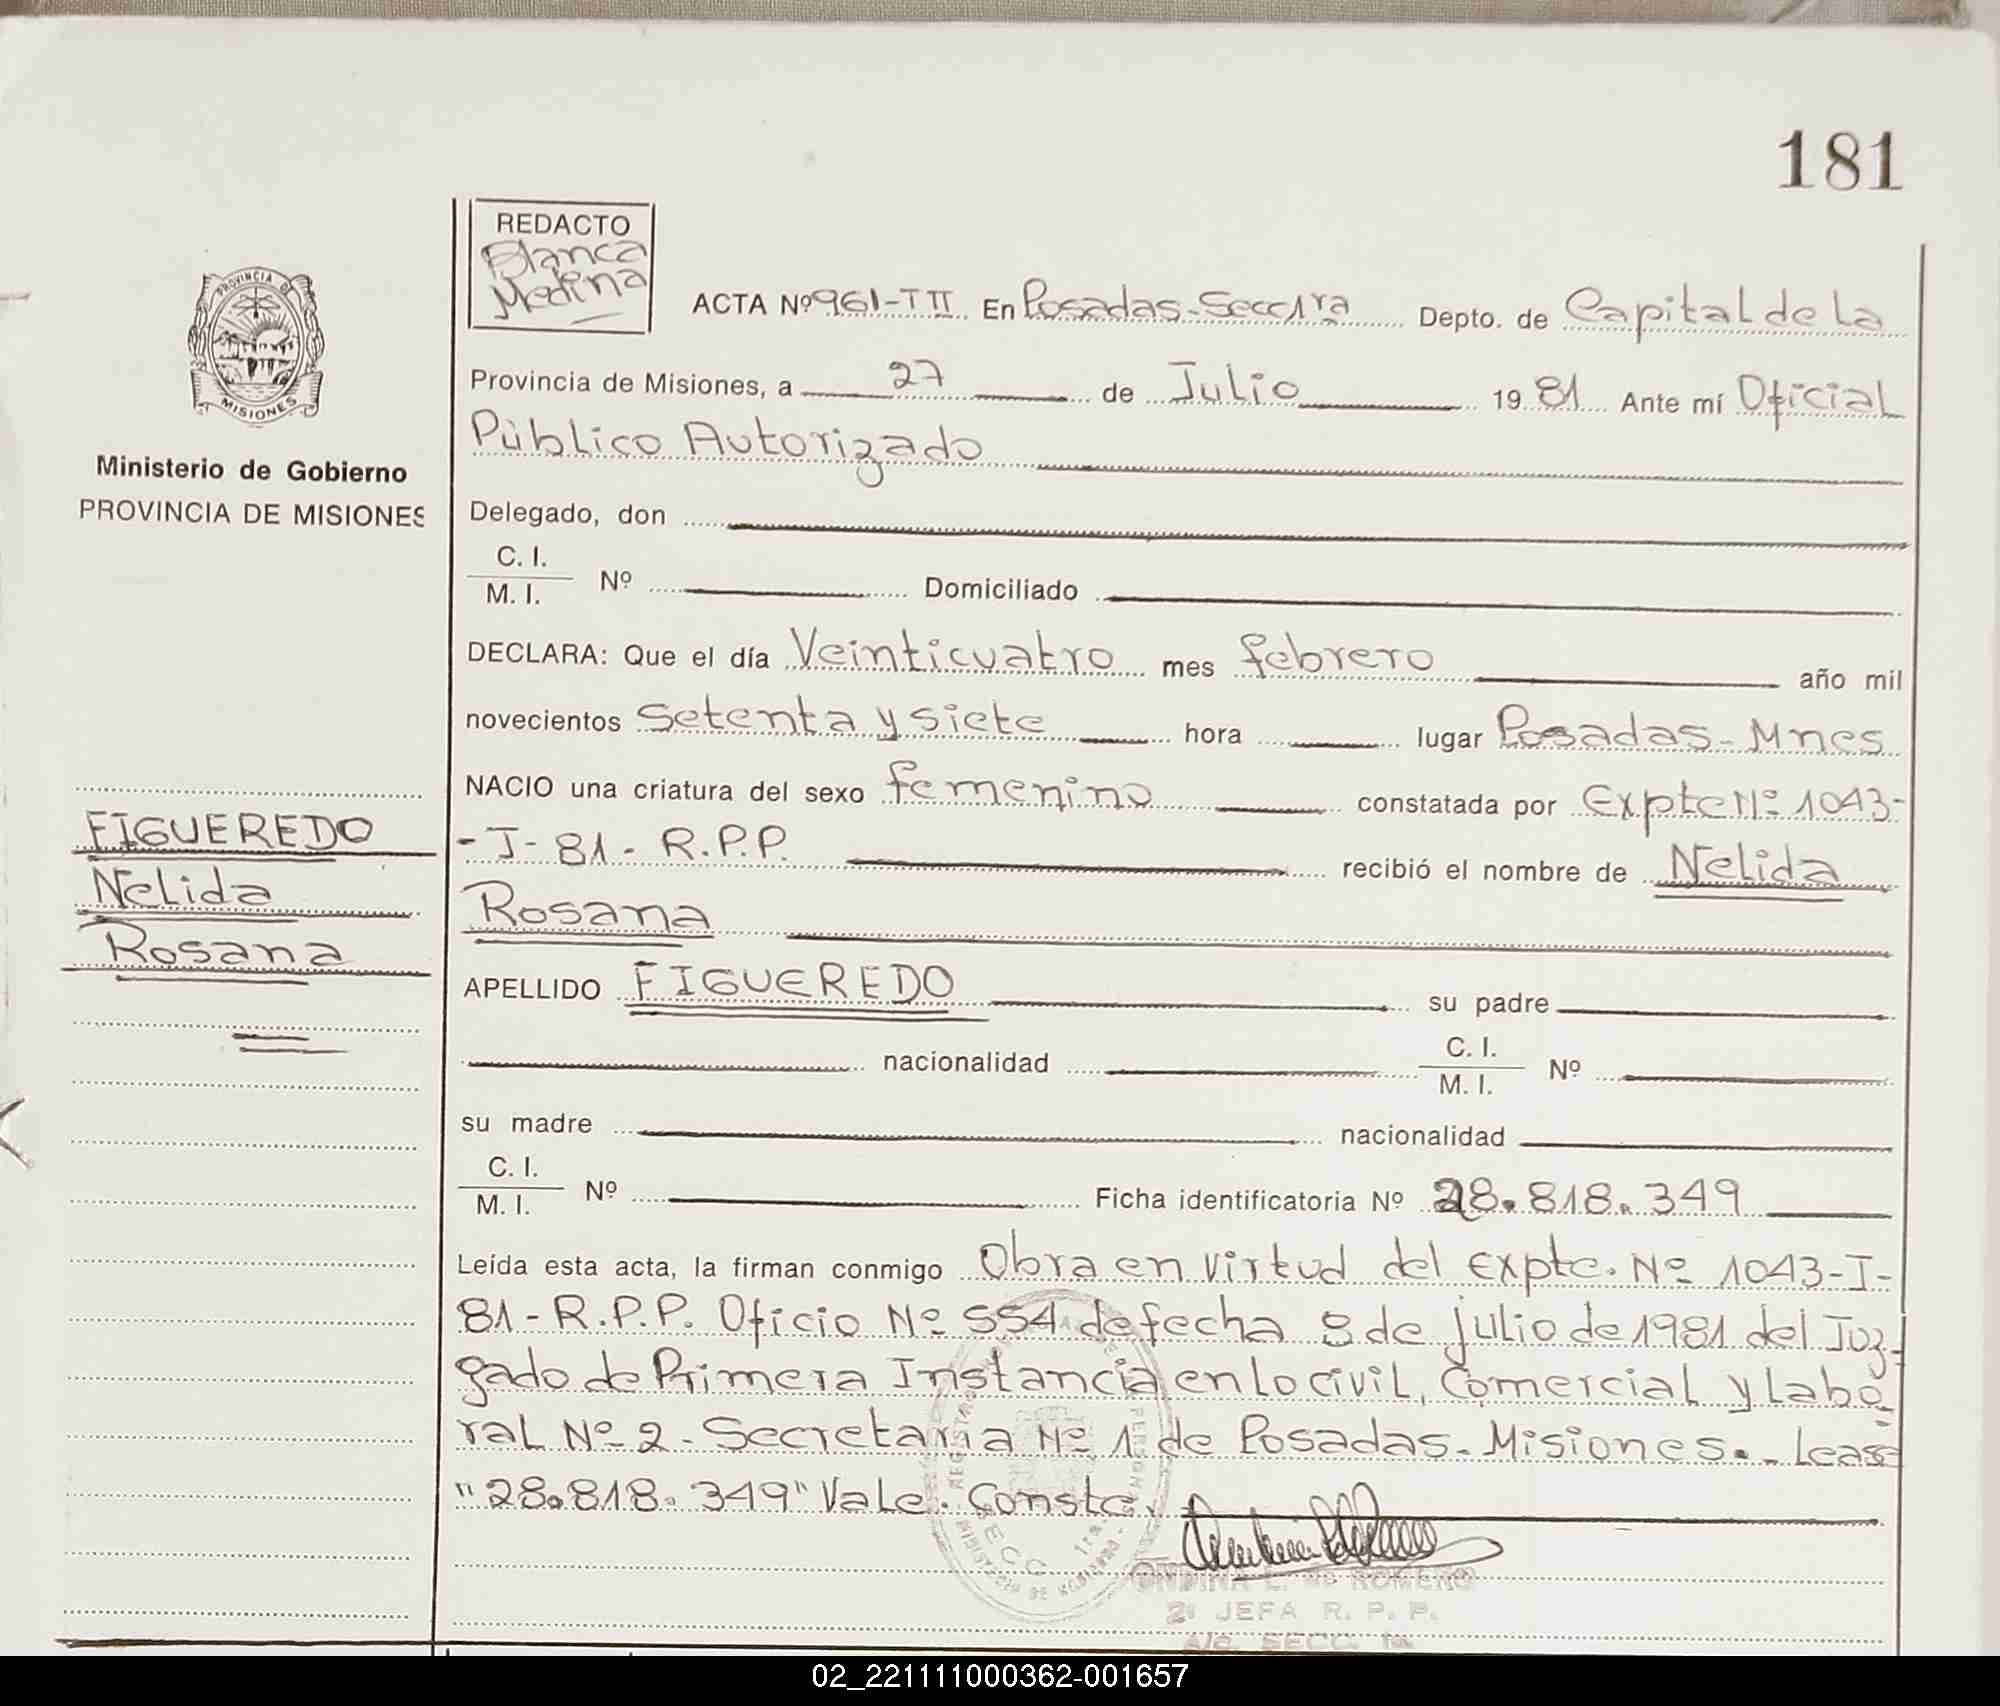 181
REDACTO
Blanca
Medina
PROVINCIA DE
MISIONES
ACTA Nº 961-T II En Posadas-Secc 1ra Depto. de Capital de la
Provincia de Misiones, a 27 de Julio 1981 Ante mí Oficial
Público Autorizado
Ministerio de Gobierno
PROVINCIA DE MISIONES
Delegado, don
C. I.
M. I. Nº Domiciliado
DECLARA: Que el día Veinticuatro mes febrero año mil
novecientos setenta y siete hora lugar Posadas-Mnes
NACIO una criatura del sexo femenino constatada por Expte Nº 1043-
-I-81-R.P.P. recibió el nombre de Nelida
Rosana
FIGUEREDO
Nelida
Rosana
APELLIDO FIGUEREDO su padre
nacionalidad C. I.
M. I. Nº
su madre nacionalidad
C. I.
M. I. Nº Ficha identificatoria Nº 28.818.349
Leída esta acta, la firman conmigo Obra en virtud del Expte. Nº 1043-I-
81-R.P.P. Oficio Nº 554 de fecha 8 de julio de 1981 del Juz-
gado de Primera Instancia en lo civil, Comercial y Labo-
ral Nº 2-Secretaria Nº 1 de Posadas-Misiones.- Lease
"28.818.349" Vale. Conste.
SECC. 1ra.
MINISTERIO DE GOBIERNO
ONDINA L. de ROMERO
2º JEFA R. P. P.
A/c. SECC. 1a.
02_221111000362-001657